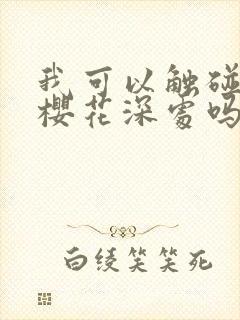 我可以触碰
樱花深处吗
白绫笑笑死